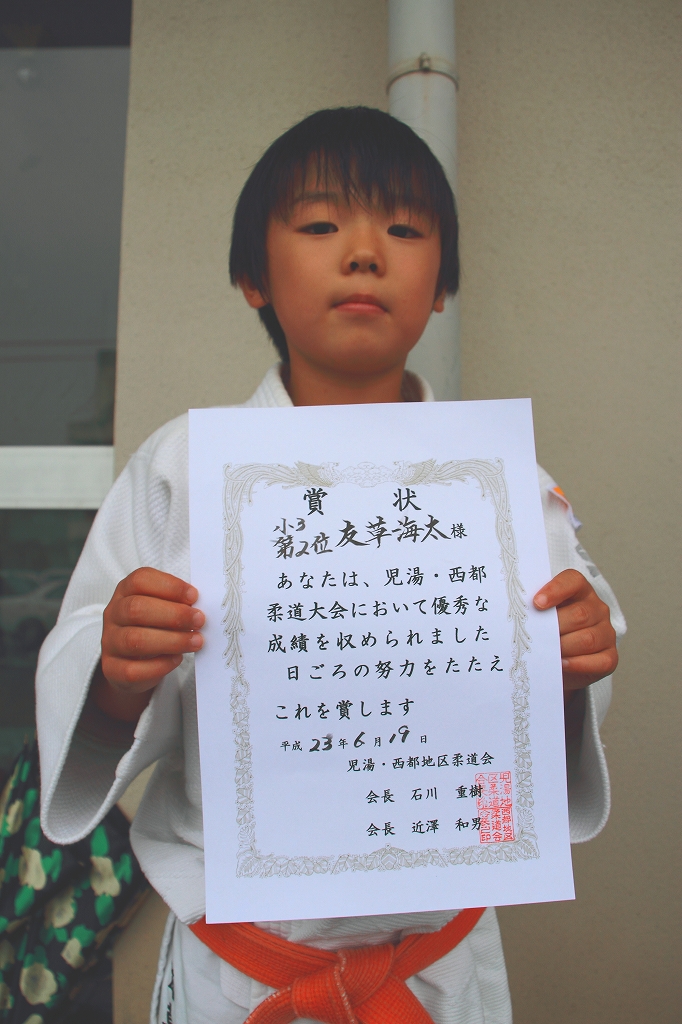 賞 状
小3
第2位 友草海太様
あなたは、児湯・西都
柔道大会において優秀な
成績を収められました
日ごろの努力をたたえ
これを賞します
平成 23 年 6 月 19 日
児湯・西都地区柔道会
会長 石川 重樹
会長 近澤 和男